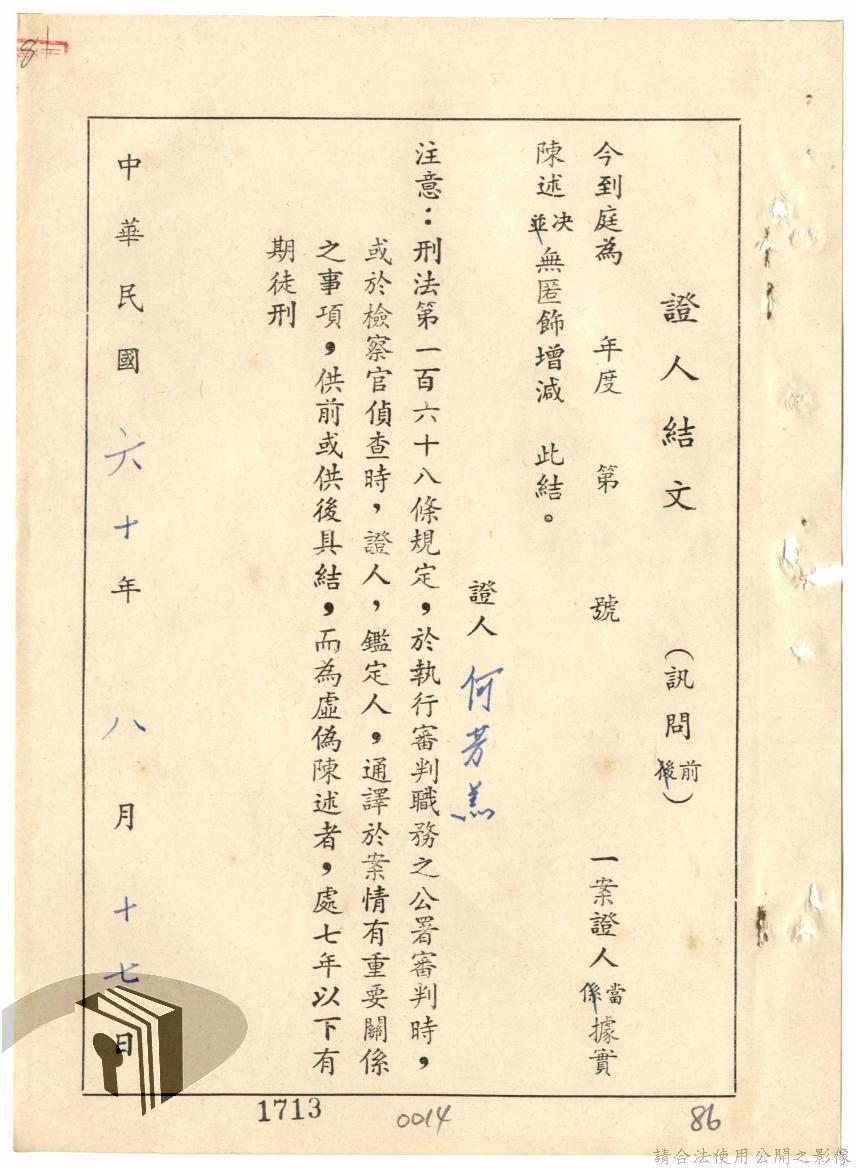 證人結文（訊問前後）
今到庭為　年度　第　號　一案證人當係據實
陳述決並無匿飾增減　此結。
證人 何芳羔
注意：刑法第一百六十八條規定，於執行審判職務之公署審判時，
或於檢察官偵查時，證人，鑑定人，通譯於案情有重要關係
之事項，供前或供後具結，而為虛偽陳述者，處七年以下有
期徒刑
中華民國六十年八月十七日
81
1713
0014
86
請合法使用公開之影像